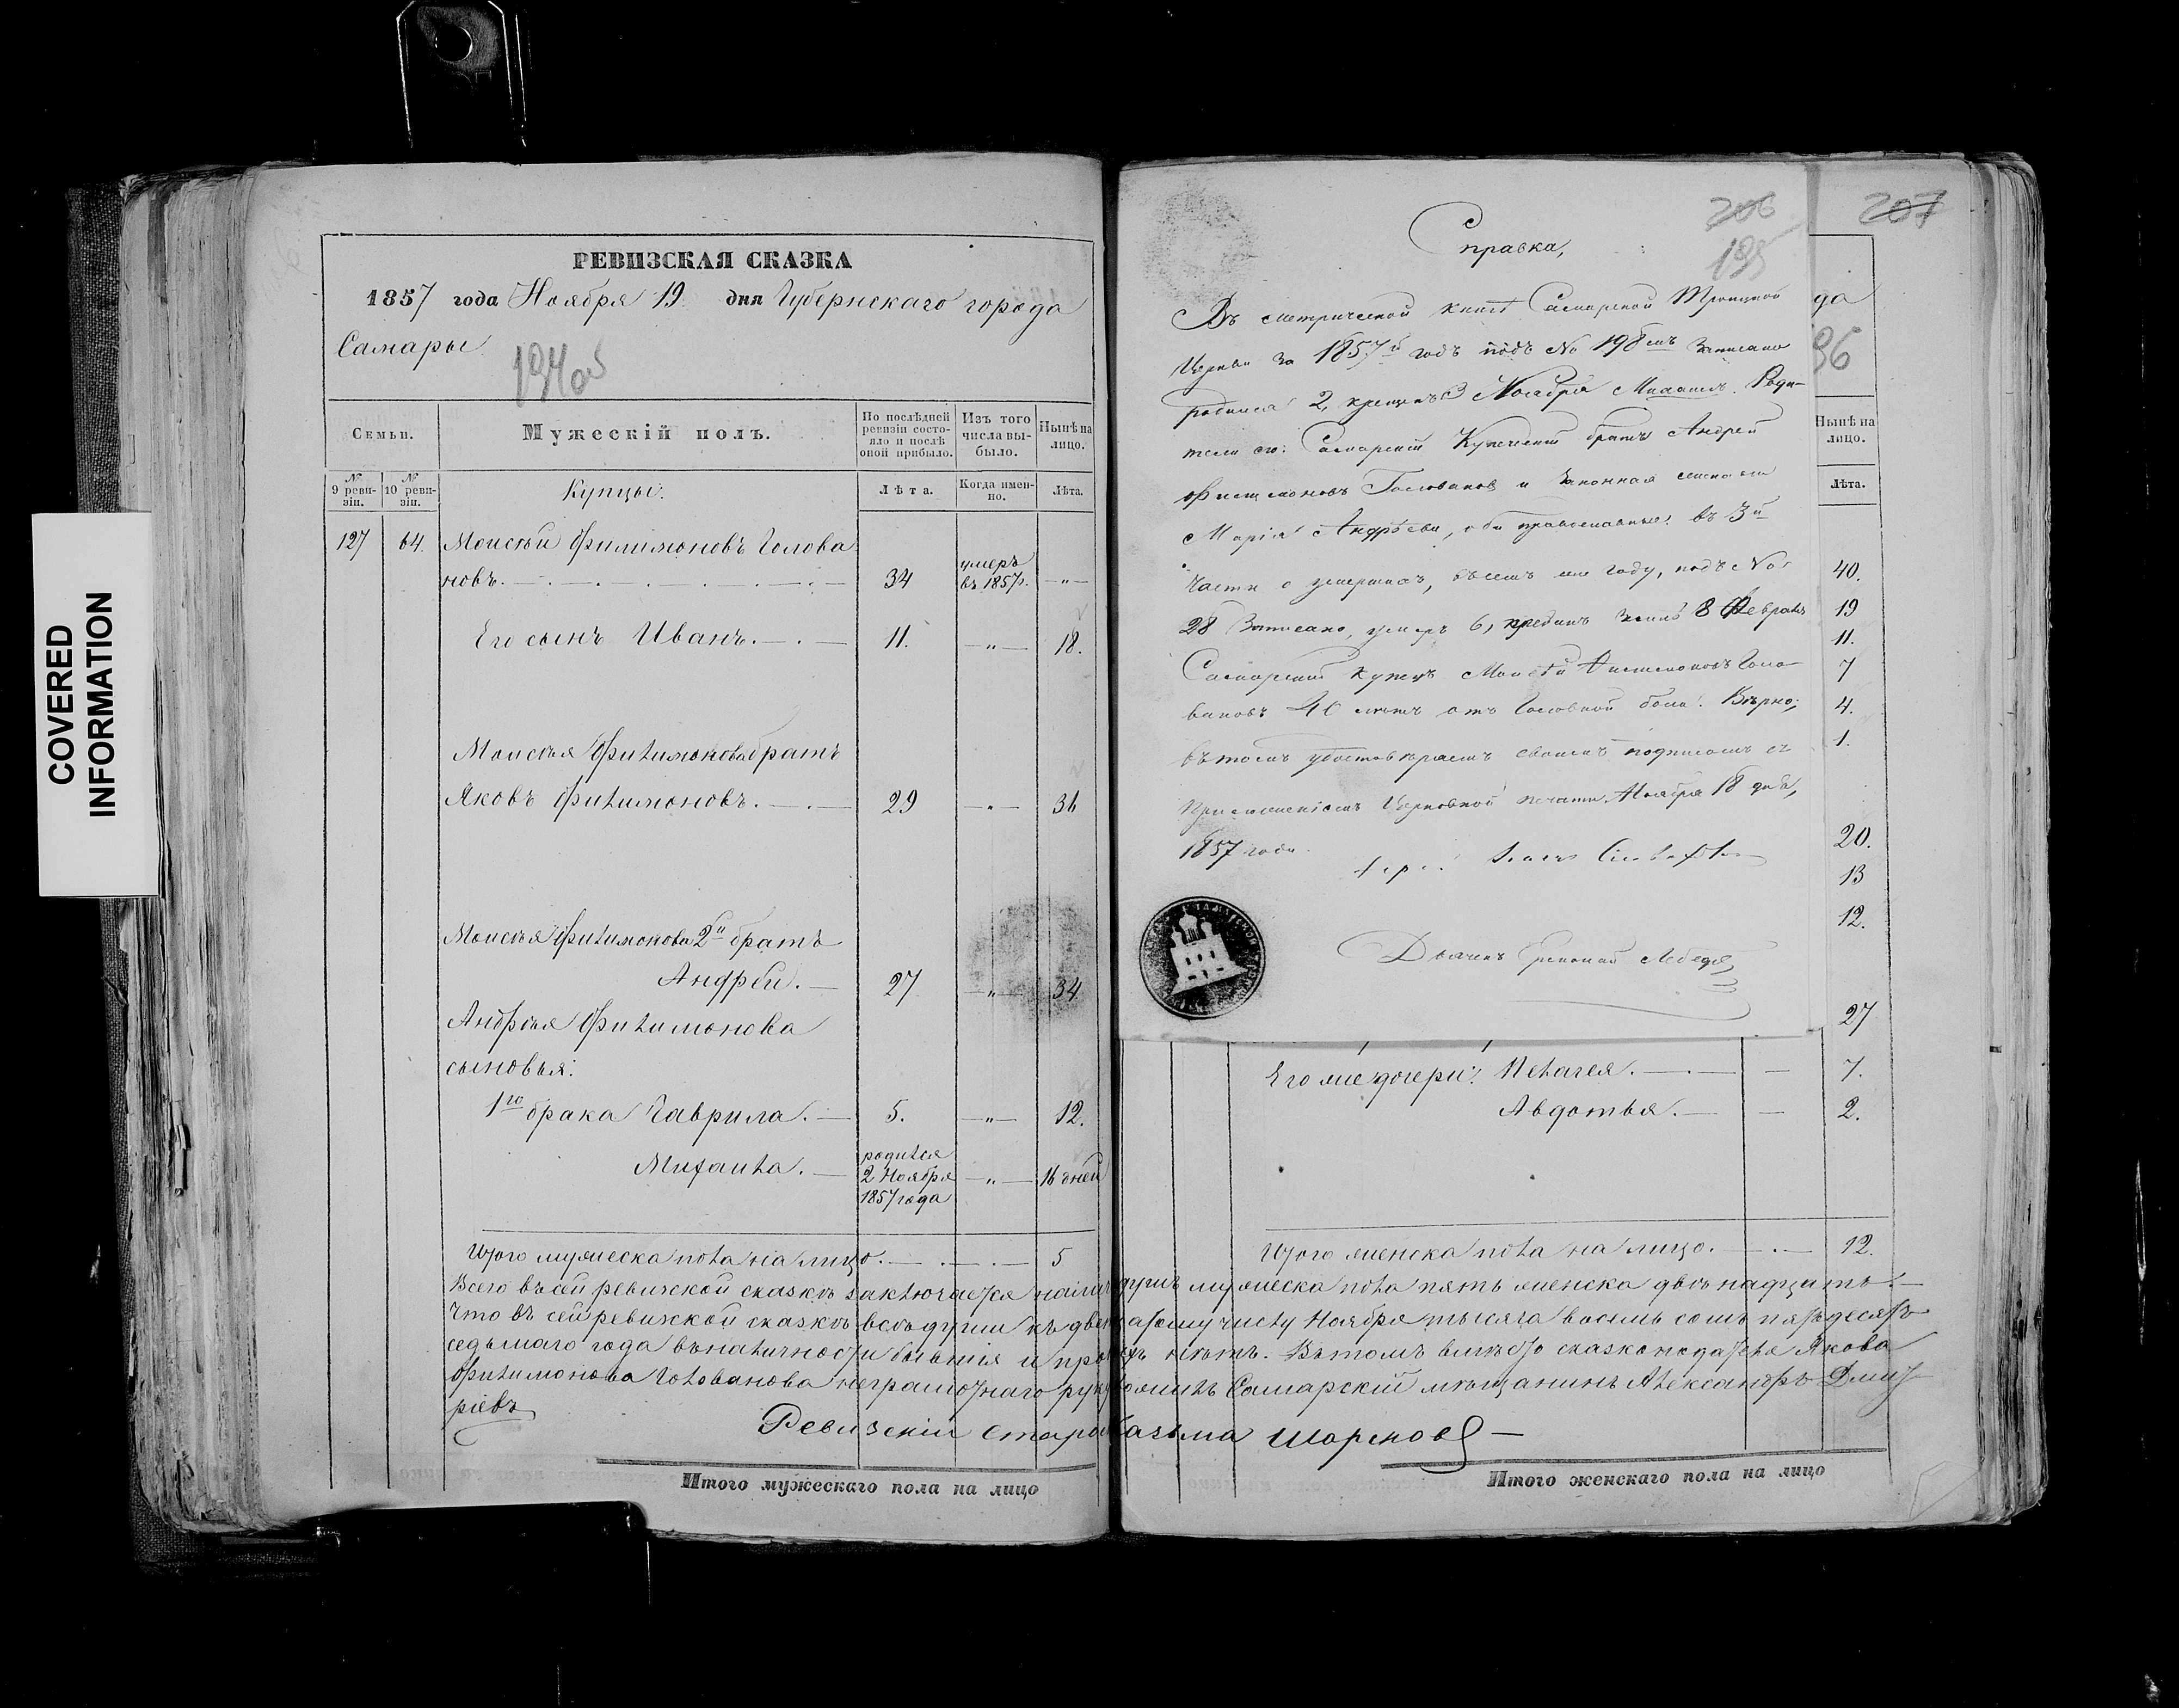 COVERED
INFORMATION
РЕВИЗСКАЯ СКАЗКА
1857 года Ноября 19 дня Губернскаго города
Самары
194об
Семьи.
Мужескій полъ.
По послѣдней ревизіи состояло и послѣ оной прибыло.
Изъ того числа выбыло.
Нынѣ на лицо.
№ 9 ревизіи.
№ 10 ревизіи.
Купцы:
Лѣта.
Когда именно.
Лѣта.
127 64. Моисей Филимоновъ Голова
новъ. 34 умеръ въ 1857г. — " —
Его сынъ Иванъ. 11. — " — 18.
Моисея Филимонова братъ
Яковъ Филимоновъ. 29 — " — 36
Моисея Филимонова 2й братъ
Андрей. 27 — " — 34
Андрея Филимонова
сыновья:
1го брака Гаврила. 5. — " — 12.
Михаила. родился 2 Ноября 1857 года — " — 16 дней
Итого мужеска пола на лицо. 5
Справка,
206
195
207
Въ метрической книгѣ Самарской Троицкой
Церкви за 1857й годъ подъ № 198мъ записано
родился 2, крещенъ 3 Ноября Михаилъ. Роди-
тели его: Самарскій Купеческій братъ Андрей
Филимоновъ Головановъ и законная жена его
Марія Андрѣева, оба православные. въ 3й
части о умершихъ, въ семъ же году, подъ №
28 Записано, умеръ 6, преданъ землѣ 8 Февраля
Самарскій Купецъ Моисей Филимоновъ Голо-
вановъ 40 лѣтъ отъ Головной боли. Вѣрно;
въ томъ удостовѣряемъ своимъ подписомъ съ
приложеніемъ Церковной печати. Ноября 18 дня,
1857 года.
Дьячекъ
да
96
Нынѣ на лицо.
Лѣта.
40.
19
11.
7
4.
1.
20.
13
12.
27
Его же дочери: Пелагея. — 7.
Авдотья. — 2.
Итого женска пола на лицо. 12.
Всего въ сей ревизской сказкѣ заключается налицо душъ мужеска пола пять женска двѣнадцать.
Что въ сей ревизской сказкѣ всѣ души къ двенадцатому числу Ноября тысяча восемь сотъ пятьдесятъ
седьмаго года въ наличности бывшія и прописныхъ нѣтъ. Въ томъ вмѣсто сказкоподателя Якова
Филимонова Голованова неграмотнаго руку приложилъ Самарскій мѣщанинъ Александръ Дмит
ріевъ
Ревизскій Староста Козьма
Итого мужескаго пола на лицо
Итого женскаго пола на лицо